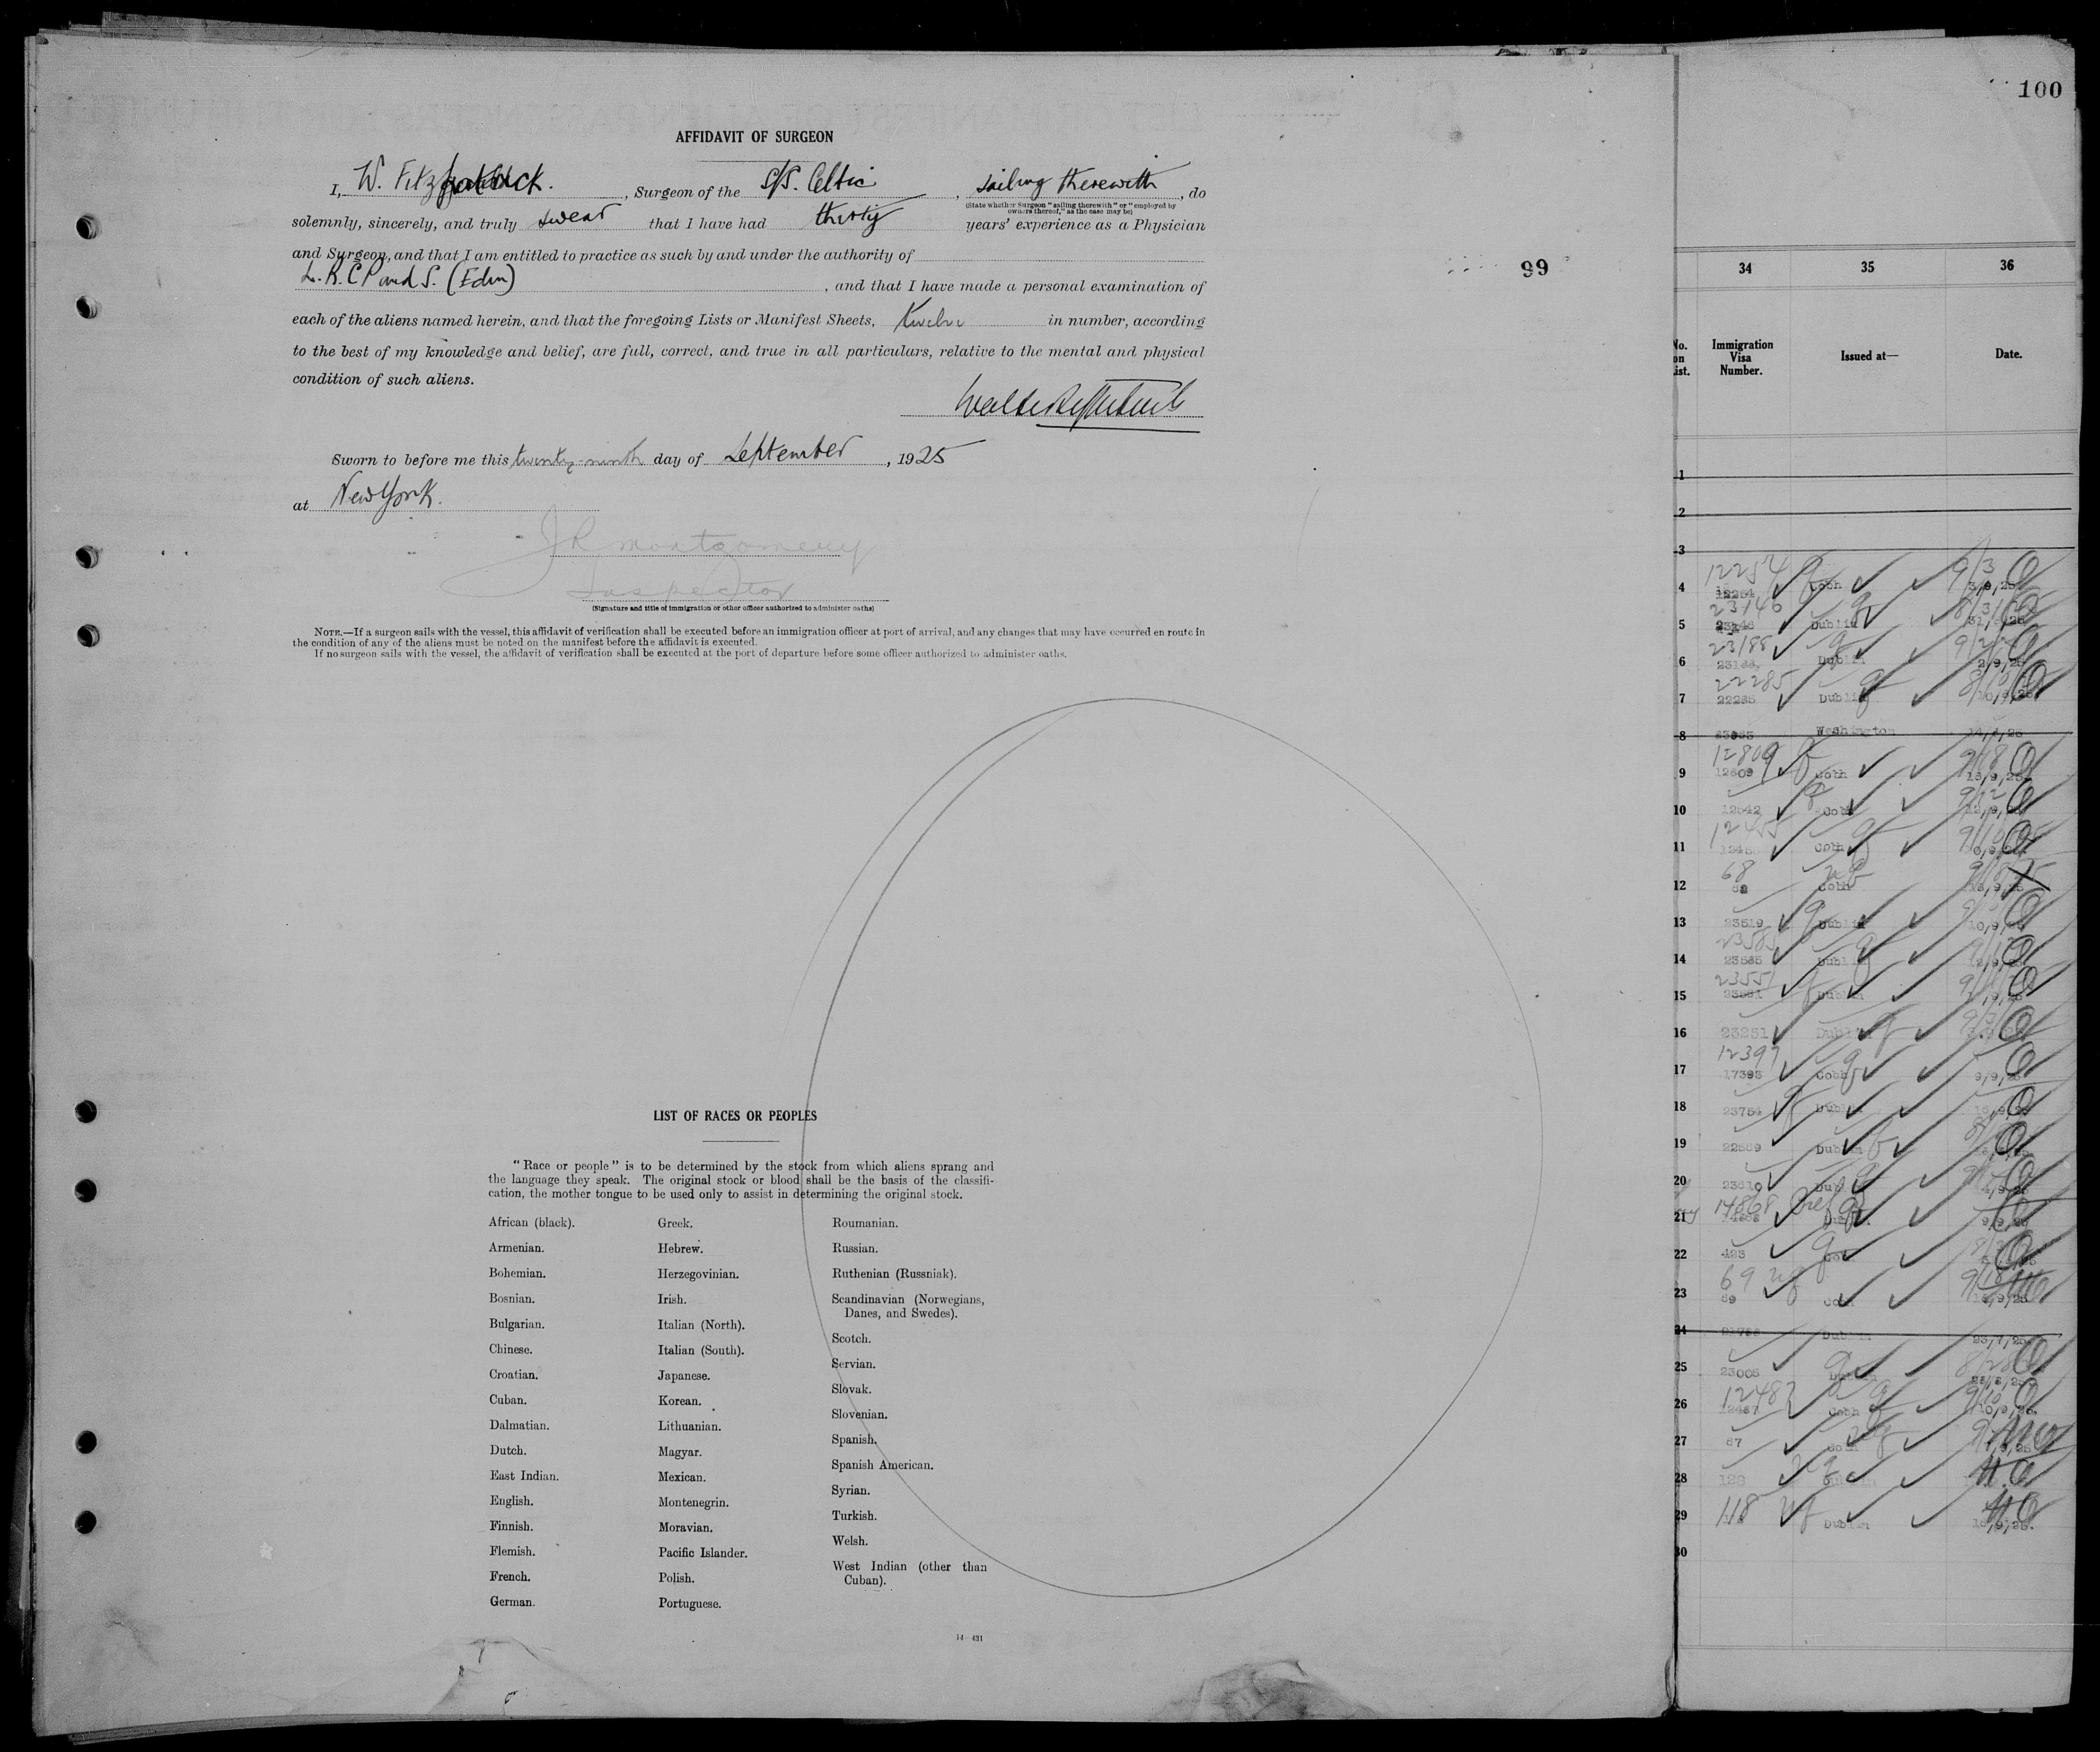 100
AFFIDAVIT OF SURGEON
I, W. Fitzpatrick., Surgeon of the S/S. Celtic, sailing therewith, do
(State whether Surgeon "sailing therewith" or "employed by
owners thereof," as the case may be)
solemnly, sincerely, and truly swear that I have had thirty years' experience as a Physician
and Surgeon, and that I am entitled to practice as such by and under the authority of
L.R.C.P and S. (Edin), and that I have made a personal examination of
each of the aliens named herein, and that the foregoing Lists or Manifest Sheets, twelve in number, according
to the best of my knowledge and belief, are full, correct, and true in all particulars, relative to the mental and physical
condition of such aliens.
Sworn to before me this twenty-ninth day of September, 1925
at New York.
J R Montgomery
Inspector
(Signature and title of immigration or other officer authorized to administer oaths)
NOTE.—If a surgeon sails with the vessel, this affidavit of verification shall be executed before an immigration officer at port of arrival, and any changes that may have occurred en route in
the condition of any of the aliens must be noted on the manifest before the affidavit is executed.
If no surgeon sails with the vessel, the affidavit of verification shall be executed at the port of departure before some officer authorized to administer oaths.
99
LIST OF RACES OR PEOPLES
"Race or people" is to be determined by the stock from which aliens sprang and
the language they speak. The original stock or blood shall be the basis of the classifi-
cation, the mother tongue to be used only to assist in determining the original stock.
African (black).
Armenian.
Bohemian.
Bosnian.
Bulgarian.
Chinese.
Croatian.
Cuban.
Dalmatian.
Dutch.
East Indian.
English.
Finnish.
Flemish.
French.
German.
Greek.
Hebrew.
Herzegovinian.
Irish.
Italian (North).
Italian (South).
Japanese.
Korean.
Lithuanian.
Magyar.
Mexican.
Montenegrin.
Moravian.
Pacific Islander.
Polish.
Portuguese.
Roumanian.
Russian.
Ruthenian (Russniak).
Scandinavian (Norwegians,
Danes, and Swedes).
Scotch.
Servian.
Slovak.
Slovenian.
Spanish.
Spanish American.
Syrian.
Turkish.
Welsh.
West Indian (other than
Cuban).
14—431
34 35 36
No.
on
list.
Immigration
Visa
Number.
Issued at—
Date.
1
2
3
4 12254 Cobh 3/9/25
5 23146 Dublin
6 23188 Dublin 2/9/25
7 22285 Dublin
8 Washington
9 12809 Cobh
10 Cobh
11 Cobh
12 68 Cobh
13 23519 Dublin 10/9/25
14 23585 Dublin
15 23551 Dublin
16 23251 Dublin
17 12397 Cobh 9/9/25
18 23754 Dublin
19 22559 Dublin
20 23610 Dubl
21 14868 Dublin 9/9/25
22 423
23 69 Cobh
24 Dublin
25 23005 Dublin
26 12487 Cobh 10/9/25
27 67
28 128 Dublin
29 118 Dublin
30